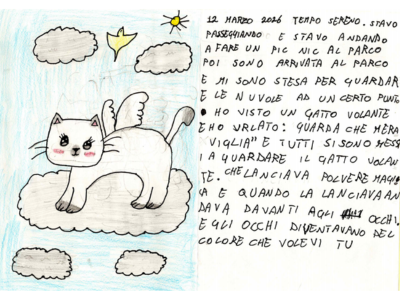 12 MARZO 2026 TEMPO SERENO. STAVO
PASSEGGIANDO E STAVO ANDANDO
A FARE UN PIC NIC AL PARCO
POI SONO ARRIVATA AL PARCO
E MI SONO STESA PER GUARDAR
E LE NUVOLE AD UN CERTO PUNTO
HO VISTO UN GATTO VOLANTE
E HO URLATO: GUARDA CHE MERA
VIGLIA" E TUTTI SI SONO MESSI
A GUARDARE IL GATTO VOLAN
TE. CHE LANCIAVA POLVERE MAGI
A E QUANDO LA LANCIAVA AN
DAVA DAVANTI AGLI OCCHI.
E GLI OCCHI DIVENTAVANO DEL
COLORE CHE VOLEVI TU